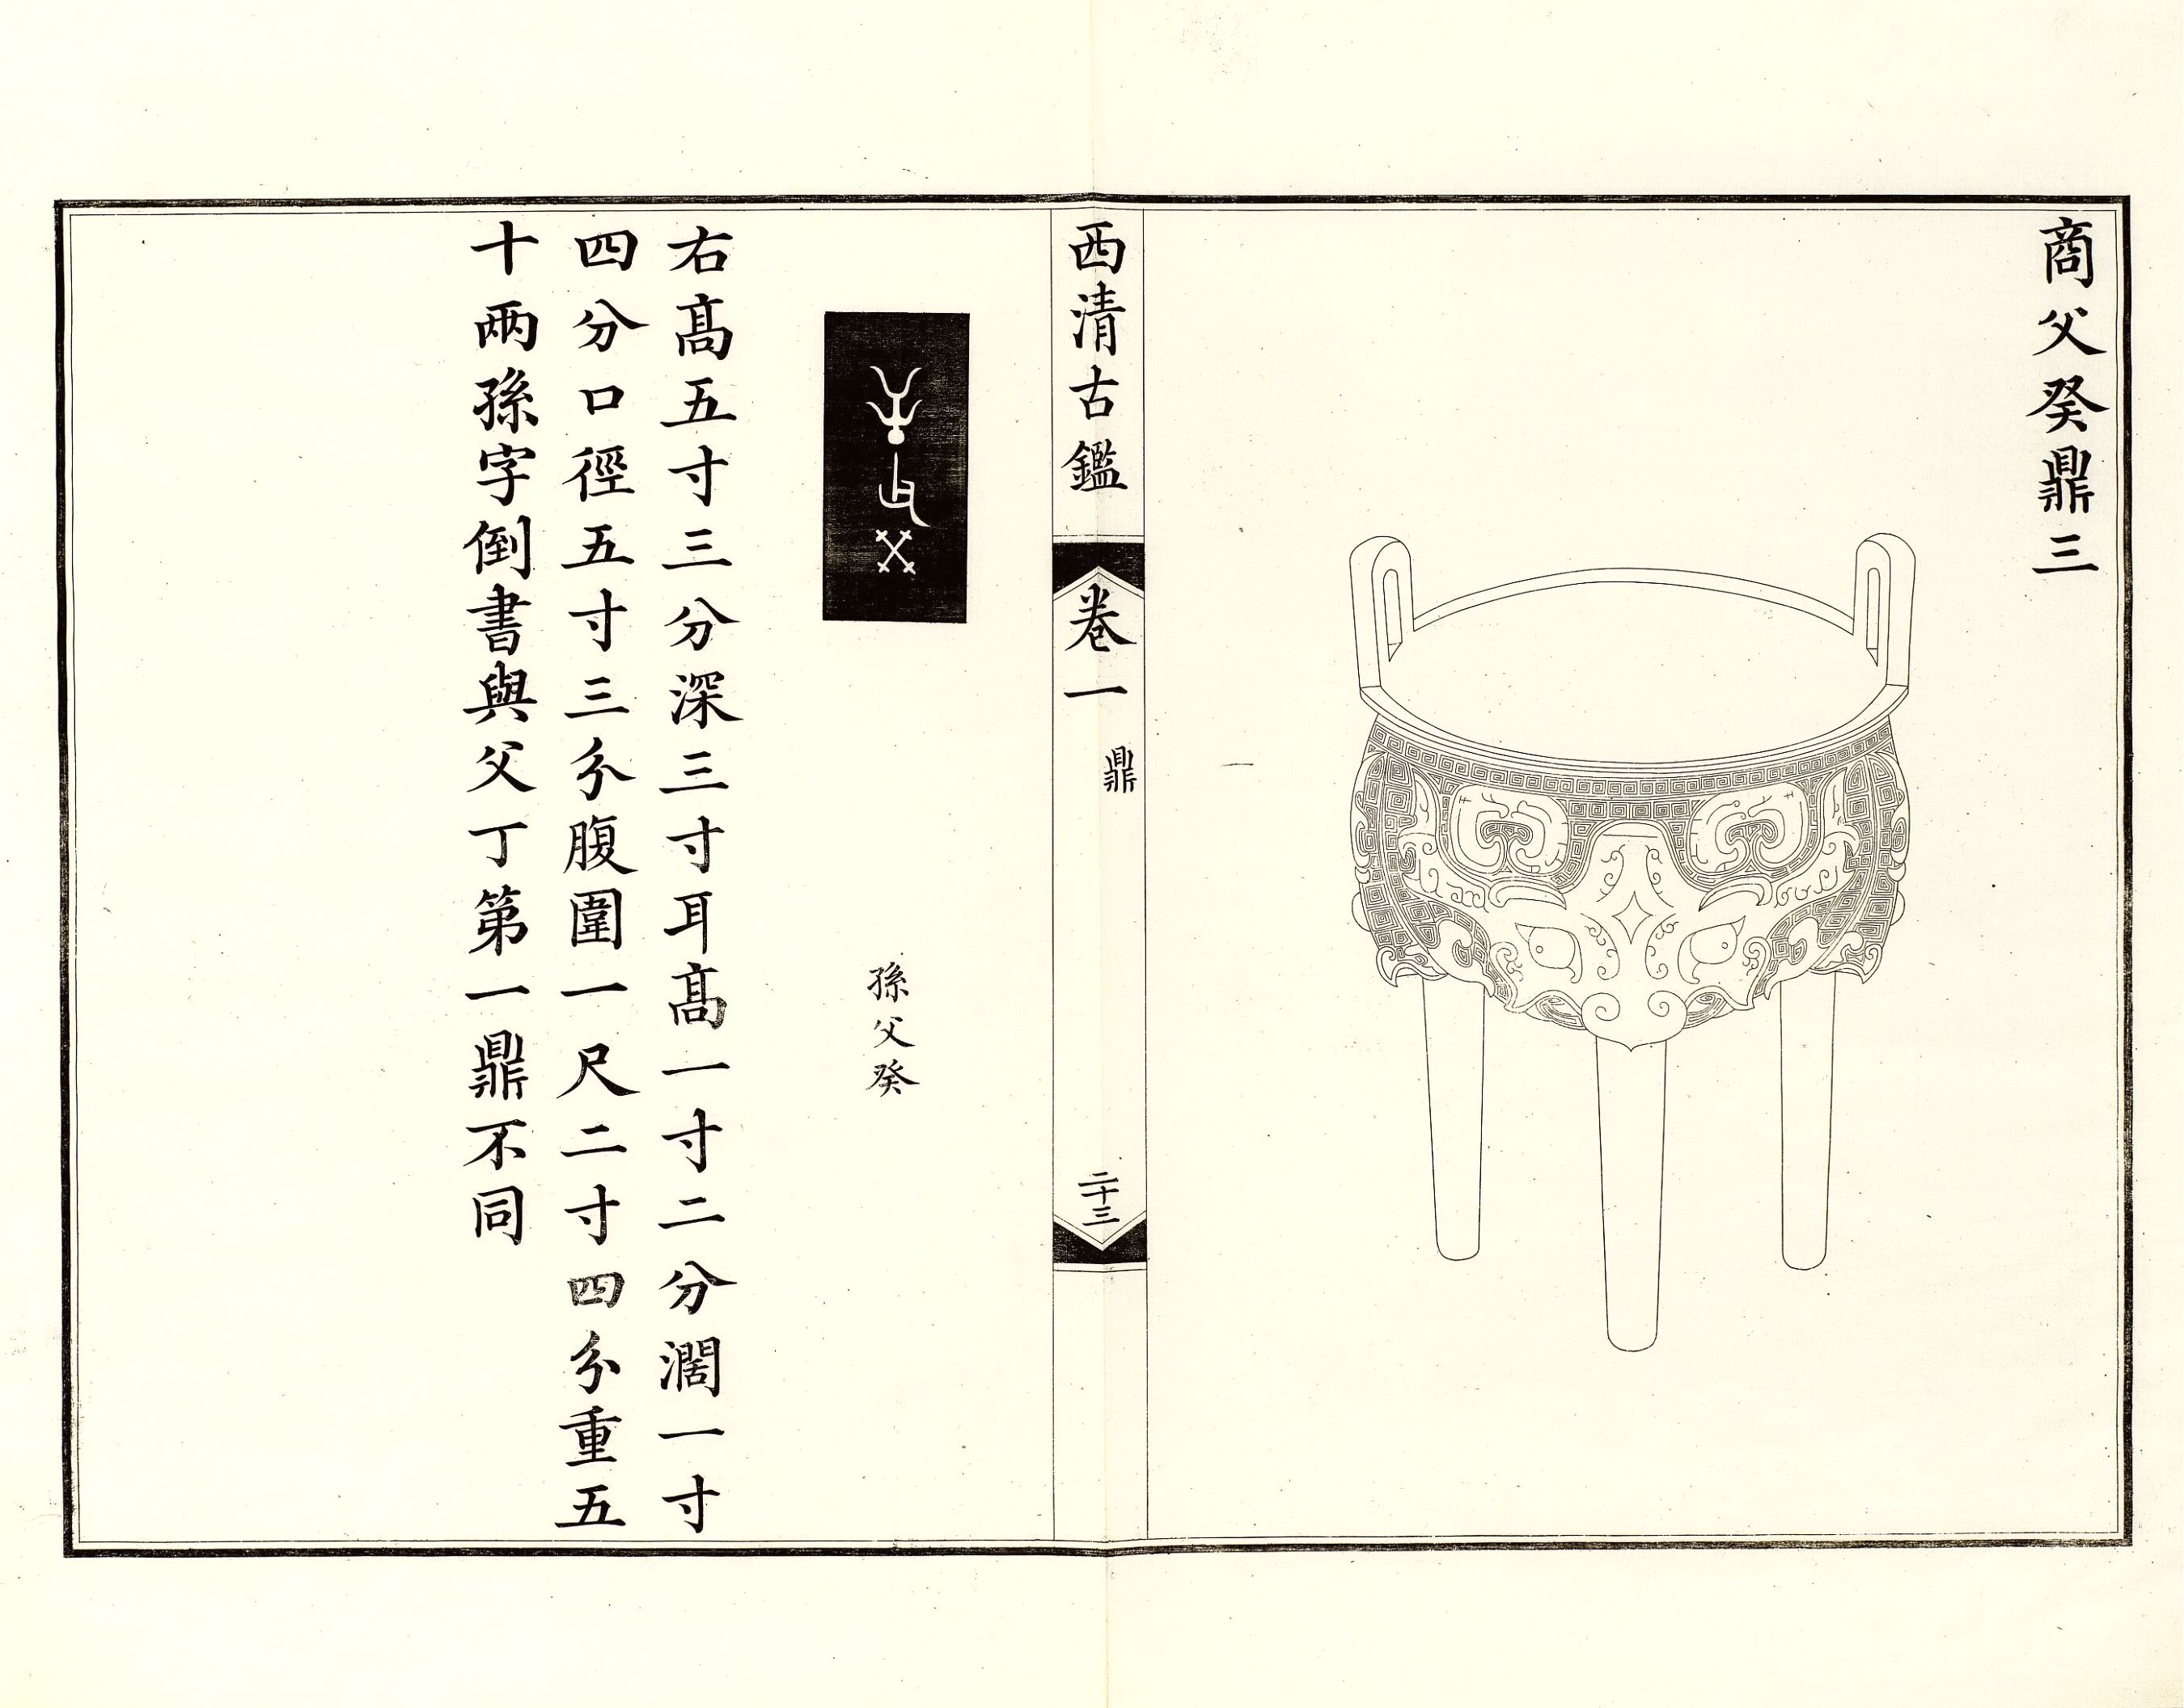 商父癸鼎三
西清古鑑
卷一
鼎
二十三
孫父癸
右髙五寸三分深三寸耳髙一寸二分濶一寸
四分口徑五寸三分腹圍一尺二寸四分重五
十兩孫字倒書與父丁第一鼎不同